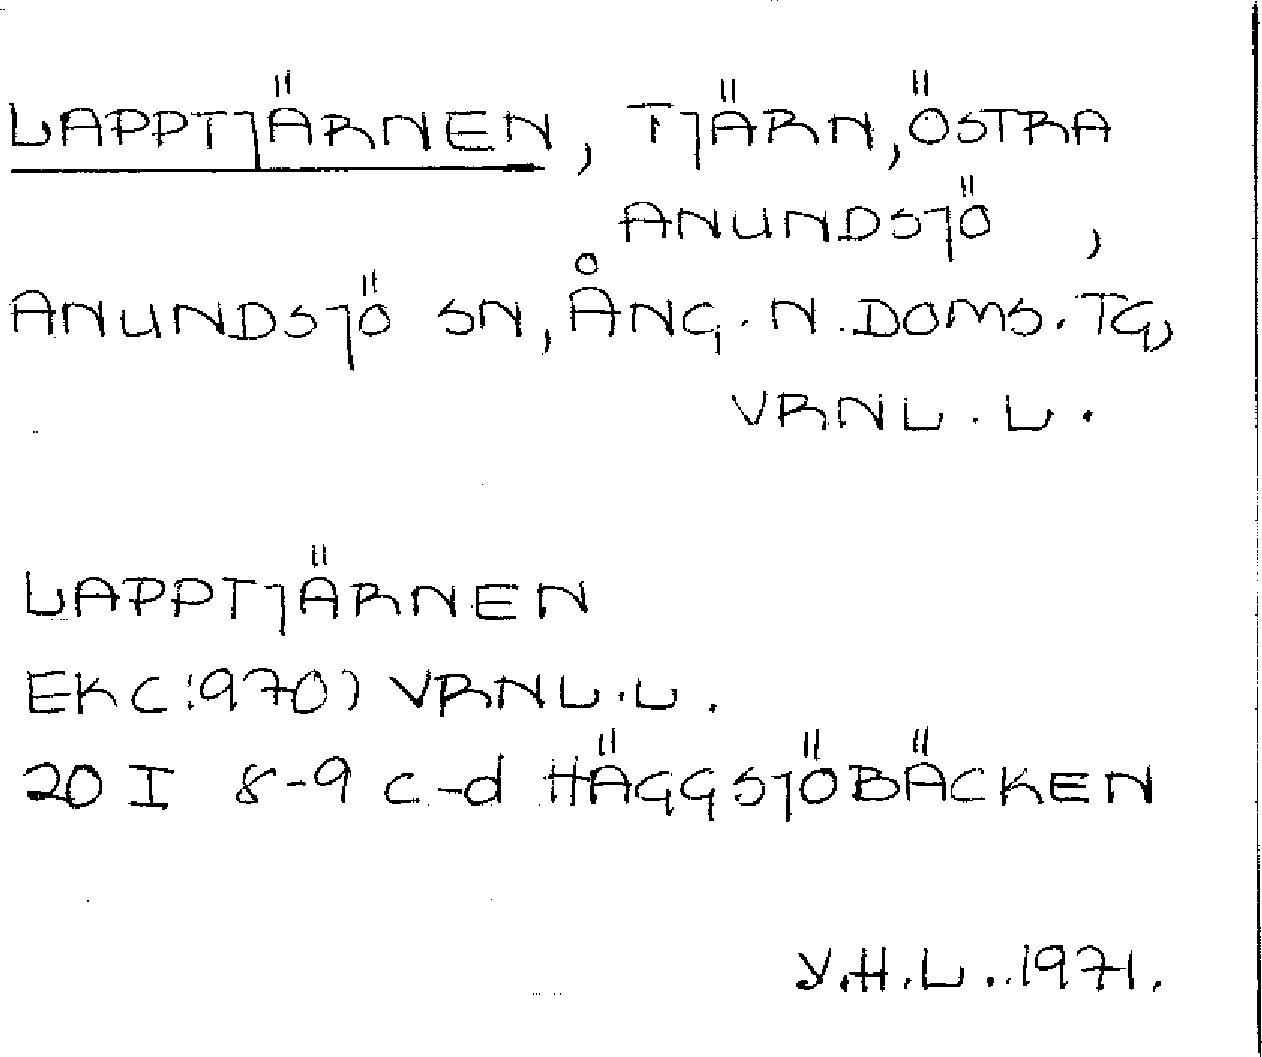 LAPPTJÄRNEN, TJÄRN, ÖSTRA
ANUNDSJÖ,
ANUNDSJÖ SN, ÅNG. N. DOMS. TG,
VRNL. L.
LAPPTJÄRNEN
EK (1970) VRNL. L.
20 I 8-9 c-d HÄGGSJÖBÄCKEN
Y.H.L. 1971.